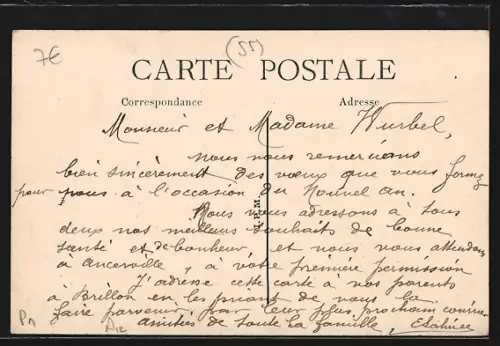 7€
(55)
CARTE POSTALE
Correspondance
Adresse
Monsieur et Madame Wurbel,
nous vous remercions
bien sincèrement des vœux que vous formez
pour nous à l'occasion du Nouvel an.
Nous vous adressons à tous
deux nos meilleurs souhaits de bonne
santé et de bonheur et nous vous attendons
à Ancerville, à votre première permission
J'adresse cette carte à nos parents
à Brillon en les priant de vous la
faire parvenir par leur plus prochain courrier
amitiés de toute la famille,